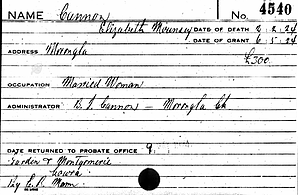 NAME Cannon No. 4540
Elizabeth Mouncey DATE OF DEATH 2.2.24
DATE OF GRANT 6.5.24
ADDRESS Morongla £300
OCCUPATION Married Woman
ADMINISTRATOR B. J. Cannon — Morongla Ck
DATE RETURNED TO PROBATE OFFICE 9.
Garden & Montgomerie
Cowra
By C. R.